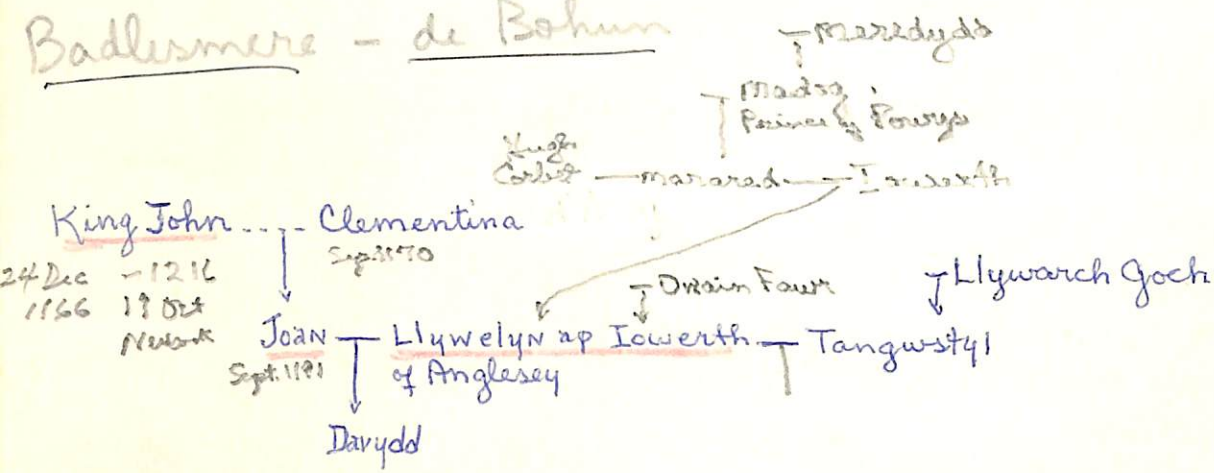 Badlesmere - de Bohun
Meredydd
Madog
Prince of Powys
Hugh
Corbet — Marared — Iowerth
King John .... Clementina
24 Dec - 1216
1166 19 Oct
Newark
Owain Fawr
Llywarch Goch
Joan — Llywelyn ap Iowerth — Tangwstyl
Sept. 1191
of Anglesey
Davydd